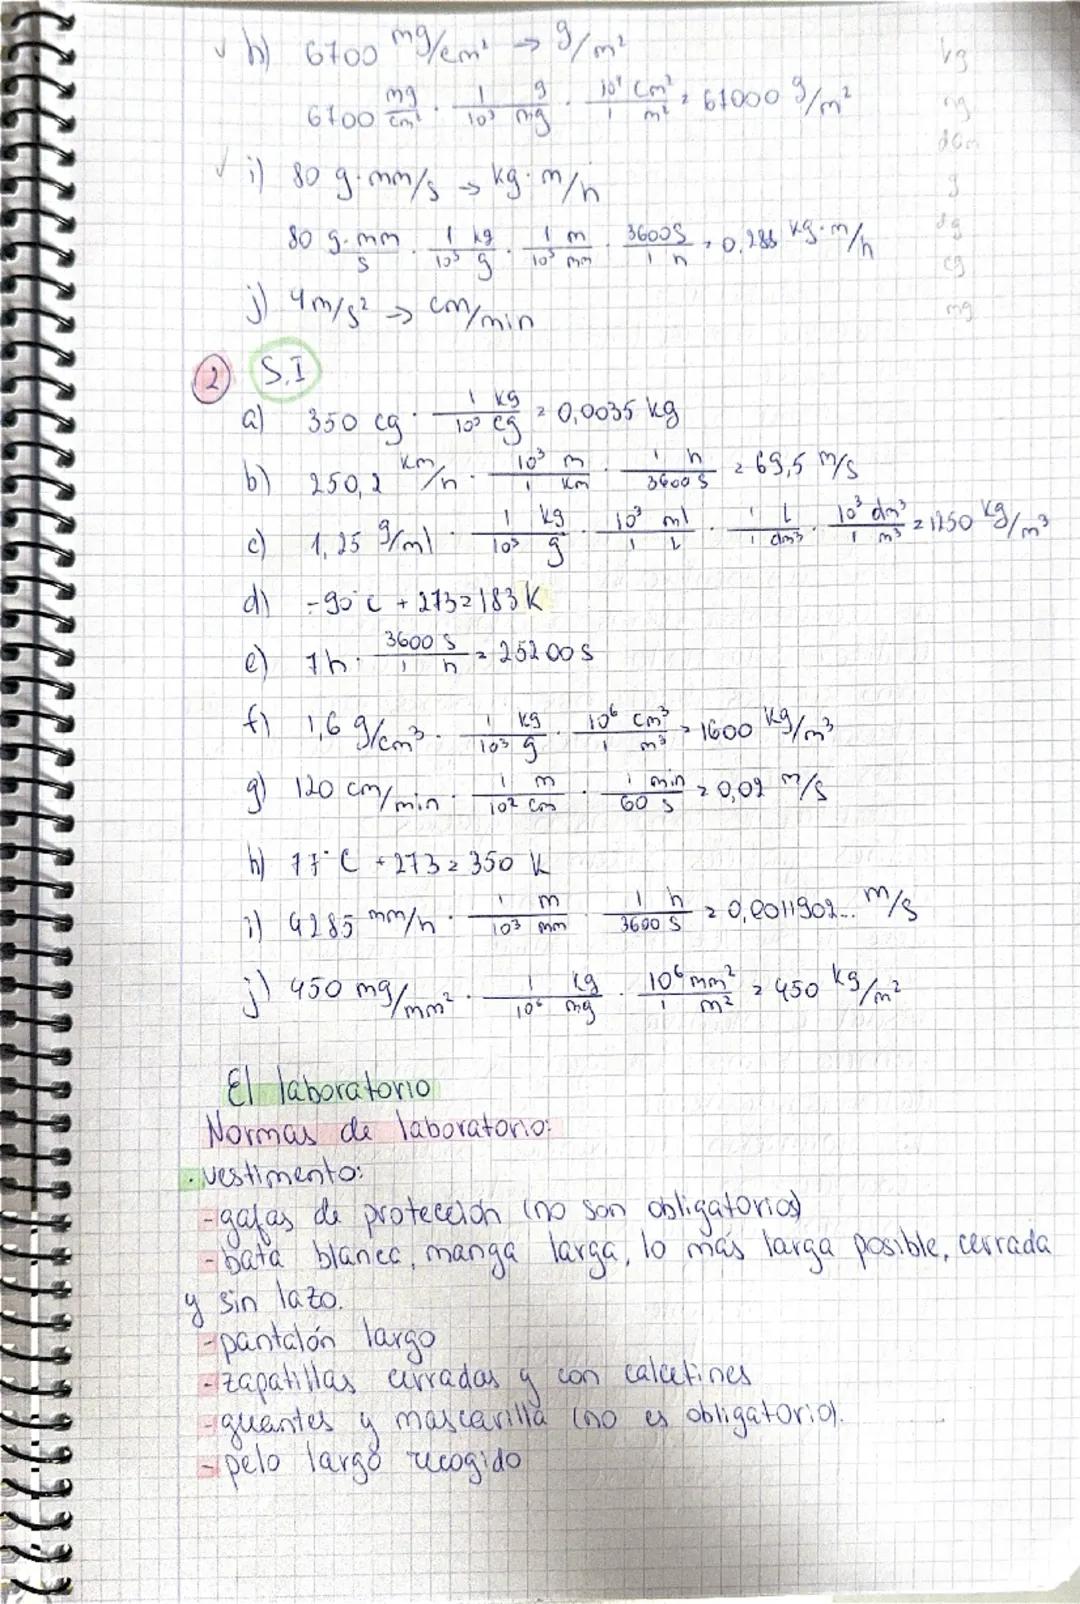 ✓ h) 6700 mg/cm² → g/m²
6700 mg/cm² · 1 g/10³ mg · 10⁴ cm²/1 m² = 67000 g/m²
✓ i) 80 g·mm/s → kg·m/h
80 g·mm/s · 1 kg/10³ g · 1 m/10³ mm · 3600 s/1 h = 0,288 kg·m/h
j) 4 m/s² → cm/min
2 S.I
a) 350 cg · 1 kg/10⁵ cg = 0,0035 kg
b) 250,2 km/h · 10³ m/1 km · 1 h/3600 s = 69,5 m/s
c) 1,25 g/ml · 1 kg/10³ g · 10³ ml/1 L · 1 L/1 dm³ · 10³ dm³/1 m³ = 1250 kg/m³
d) -90°C + 273 = 183 K
e) 7 h · 3600 s/1 h = 25200 s
f) 1,6 g/cm³ · 1 kg/10³ g · 10⁶ cm³/1 m³ = 1600 kg/m³
g) 120 cm/min · 1 m/10² cm · 1 min/60 s = 0,02 m/s
h) 77°C + 273 = 350 K
i) 4285 mm/h · 1 m/10³ mm · 1 h/3600 s = 0,0011902... m/s
j) 450 mg/mm² · 1 kg/10⁶ mg · 10⁶ mm²/1 m² = 450 kg/m²
El laboratorio
Normas de laboratorio:
· vestimento:
- gafas de protección (no son obligatorios)
- bata blanca, manga larga, lo más larga posible, cerrada
y sin lazo.
- pantalón largo
- zapatillas cerradas y con calcetines
- guantes y mascarilla (no es obligatorio).
- pelo largo recogido